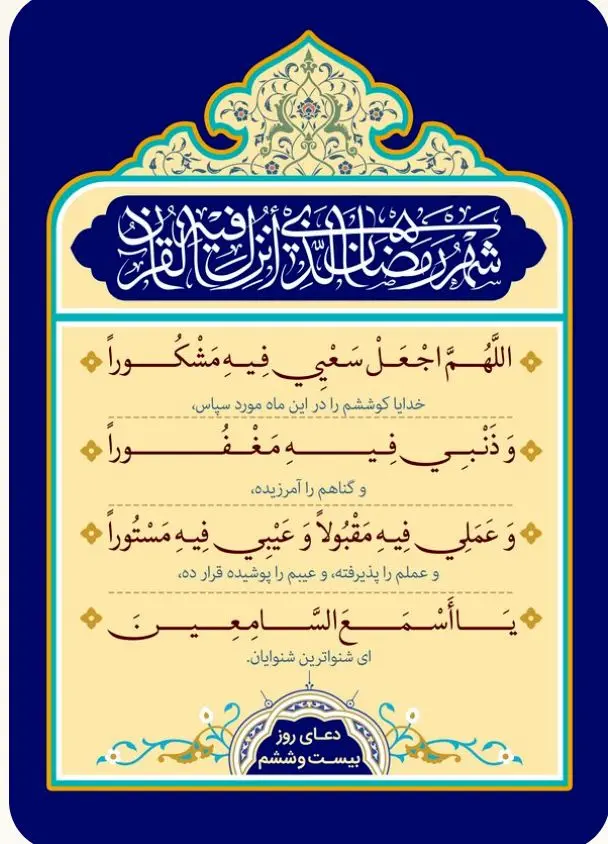 شَهْرُ رَمَضَانَ الَّذِي أُنْزِلَ فِيهِ الْقُرْآنُ
اللَّهُمَّ اجْعَلْ سَعْيِي فِيهِ مَشْكُوراً
خدایا کوششم را در این ماه مورد سپاس،
وَ ذَنْبِي فِيهِ مَغْفُوراً
و گناهم را آمرزیده،
وَ عَمَلِي فِيهِ مَقْبُولاً وَ عَيْبِي فِيهِ مَسْتُوراً
و عملم را پذیرفته، و عیبم را پوشیده قرار ده،
يَا أَسْمَعَ السَّامِعِينَ
ای شنواترین شنوایان.
دعای روز
بیست‌وششم